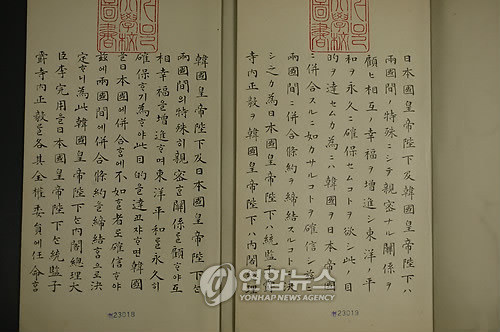 日本國皇帝陛下及韓國皇帝陛下ハ
兩國間ノ特殊ニシテ親密ナル關係ヲ
顧ヒ相互ノ幸福ヲ增進シ東洋ノ平
和ヲ永久ニ確保セムコトヲ欲シ此ノ目
的ヲ達セムカ為ニハ韓國ヲ日本帝國
ニ併合スルニ如カサルコトヲ確信シ茲ニ
兩國間ニ併合條約ヲ締結スルコトニ決
シ之カ為日本國皇帝陛下ハ統監子爵
寺內正毅ヲ韓國皇帝陛下ハ內閣總理
韓國皇帝陛下及日本國皇帝陛下는
兩國間의特殊히親密ᄒᆞᆫ關係를顧ᄒᆞ야互
相幸福을增進ᄒᆞ며東洋平和를永久히
確保ᄒᆞ기爲ᄒᆞ야此目的을達코자ᄒᆞ면韓國
을日本國에併合ᄒᆞᆷ에不如ᄒᆞᆫ者로確信ᄒᆞ야
玆에兩國間에併合條約을締結ᄒᆞᆷ으로決
定ᄒᆞ니爲此韓國皇帝陛下는內閣總理大
臣李完用을日本國皇帝陛下는統監子
爵寺內正毅를各其全權委員에任命ᄒᆞᆷ
23018
23019
연합뉴스
YONHAP NEWS AGENCY